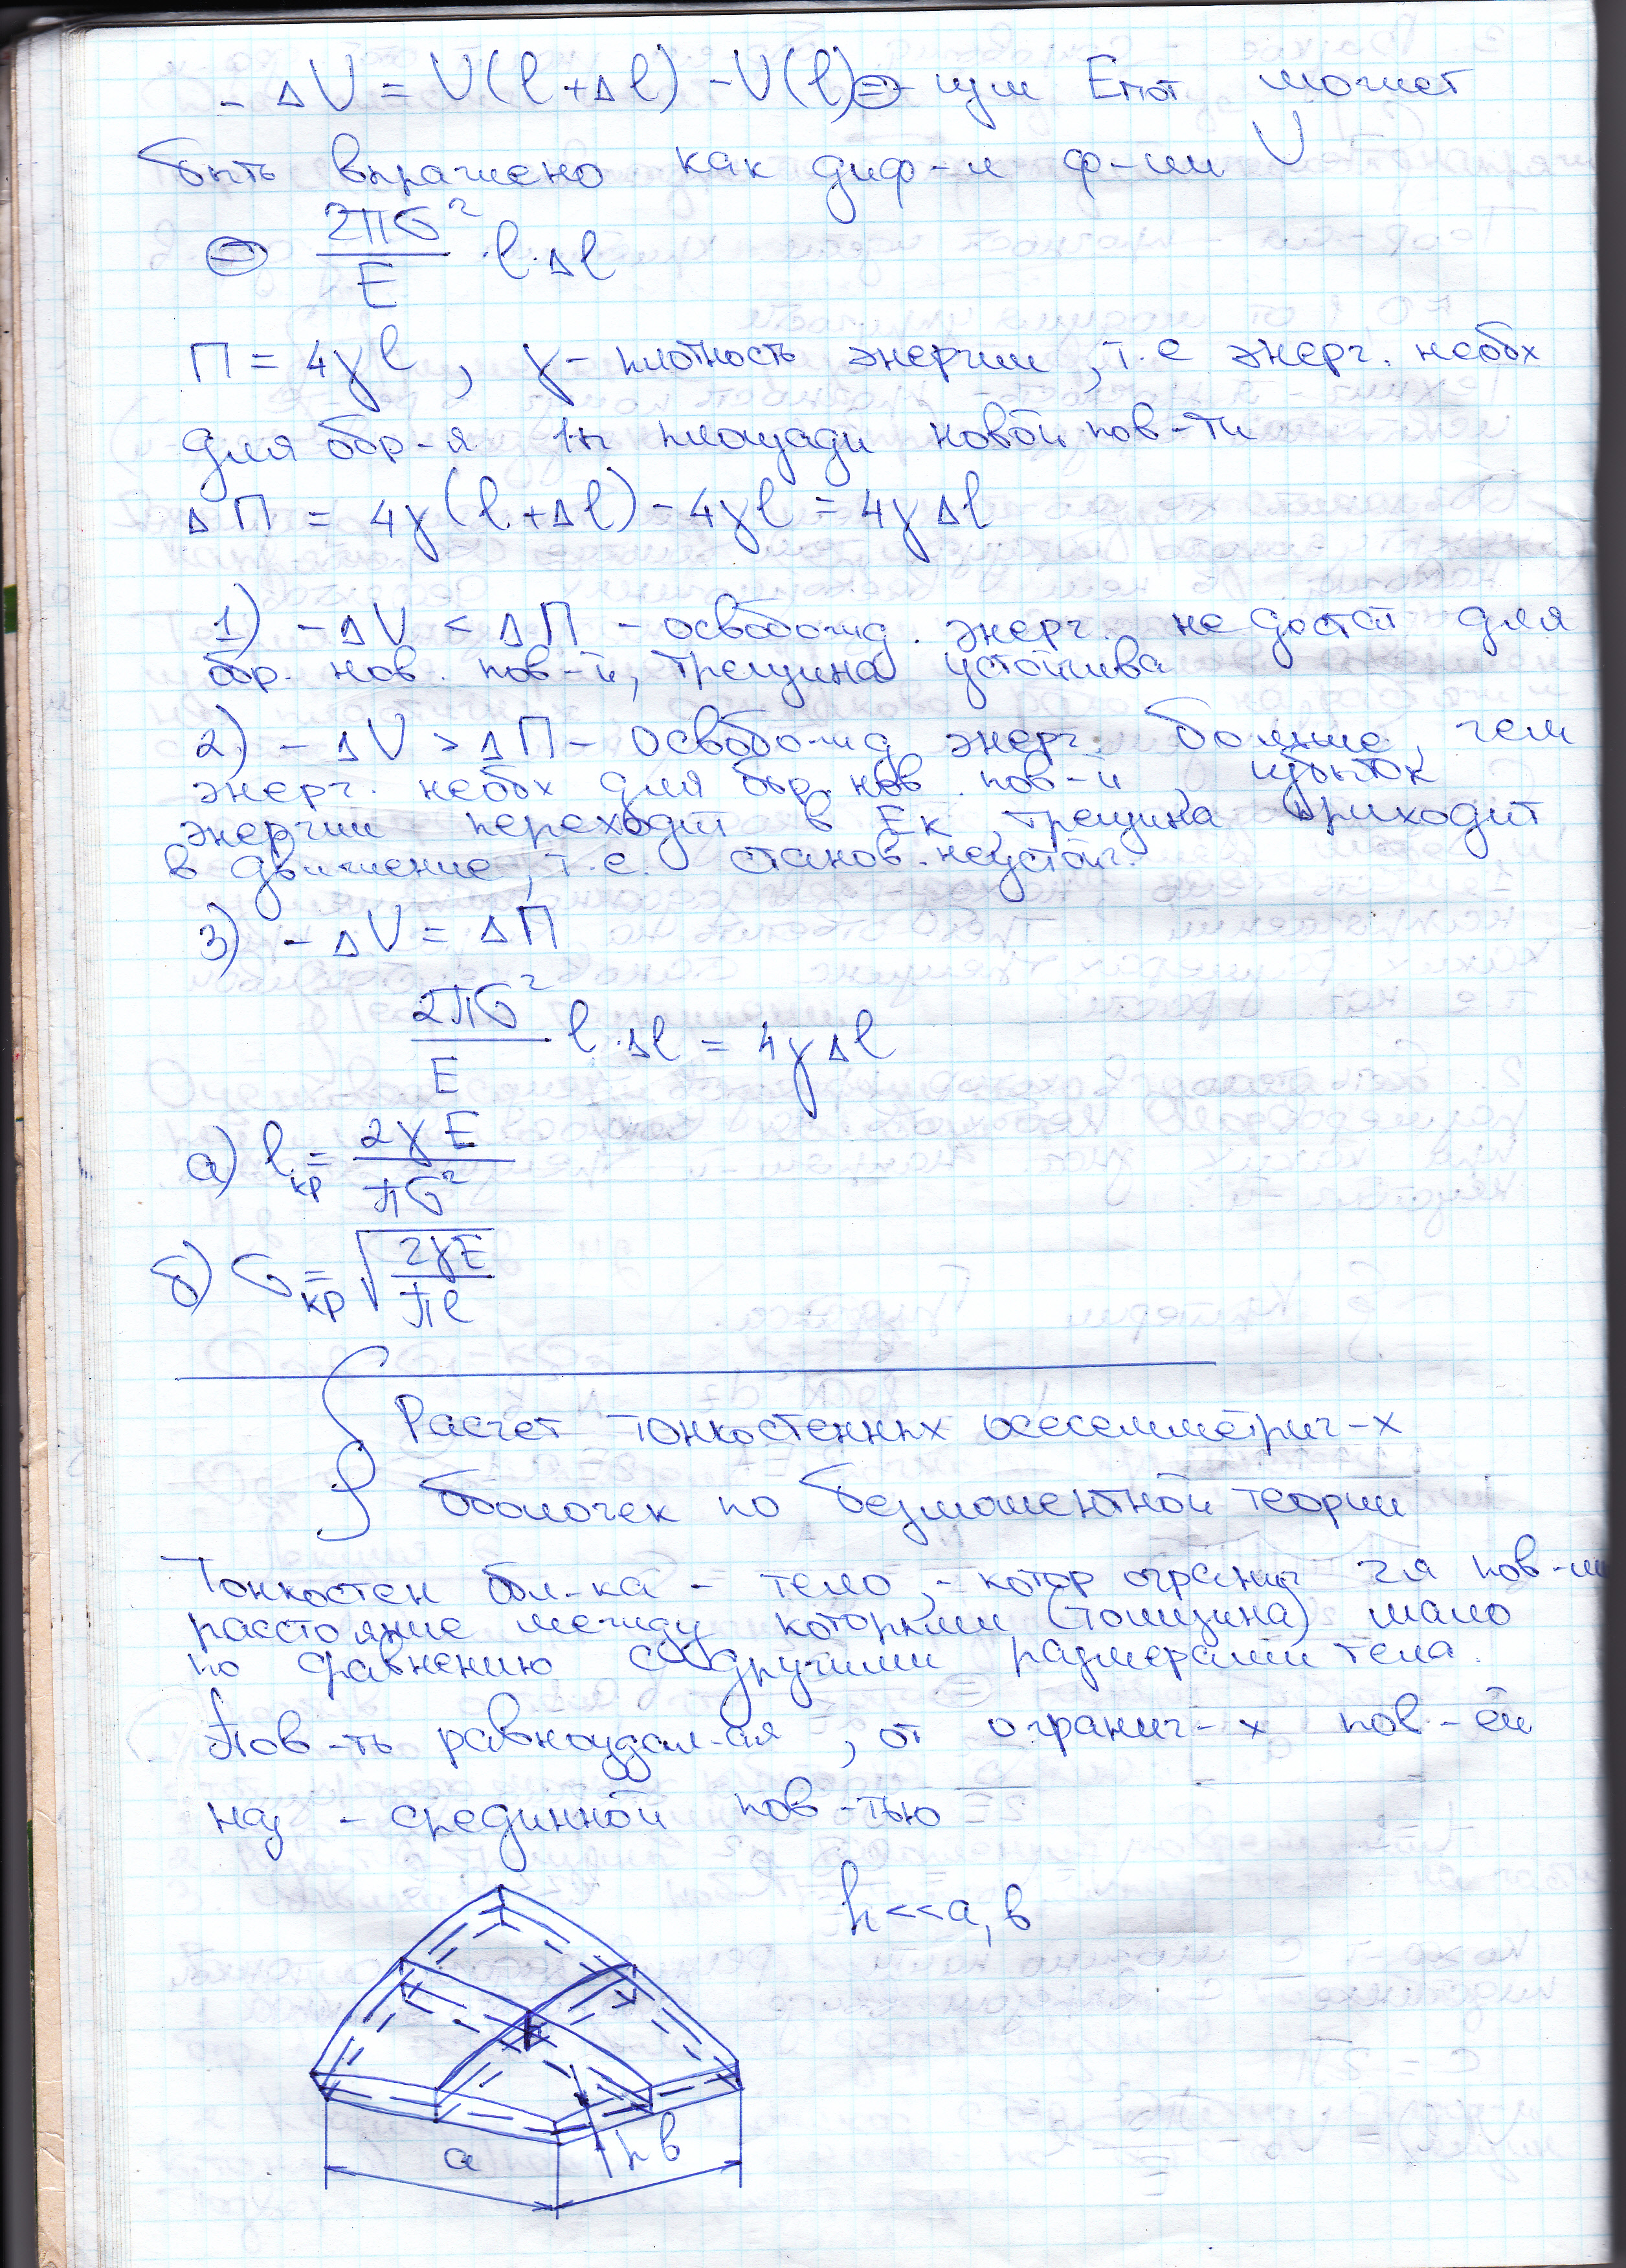 - ΔU = U(l+Δl) - U(l) ⊜ - изм Eпот может
быть выражено как диф-л ф-ии U
⊜ 2πσ²/E · l·Δl
П = 4γl, γ - плотность энергии, т.е энерг. необх
для обр-я 1цы площади новой пов-ти
ΔП = 4γ(l+Δl) - 4γl = 4γΔl
1) -ΔU < ΔП - освобожд. энерг. недостат для
обр. нов. пов-й, трещина устойчива
2) -ΔU > ΔП - освобожд энерг. больше, чем
энерг. необх для обр. нов. пов-й, избыток
энергии переходит в Eк, трещина приходит
в движение, т.е. станов. неустойч.
3) -ΔU = ΔП
2πσ²/E l·Δl = 4γΔl
а) lкр = 2γE/πσ²
б) σкр = √(2γE/πl)
Расчет тонкостенных осесемметрич-х
оболочек по безмоментной теории
Тонкостен обл-ка - тело, - котор огранич 2я пов-ми
расстояние между которыми (толщина) мало
по сравнению с другими размерами тела.
Пов-ть равноудал-ая, от огранич-х пов-ей
наз - срединной пов-тью
h<<a, в
a
h
в